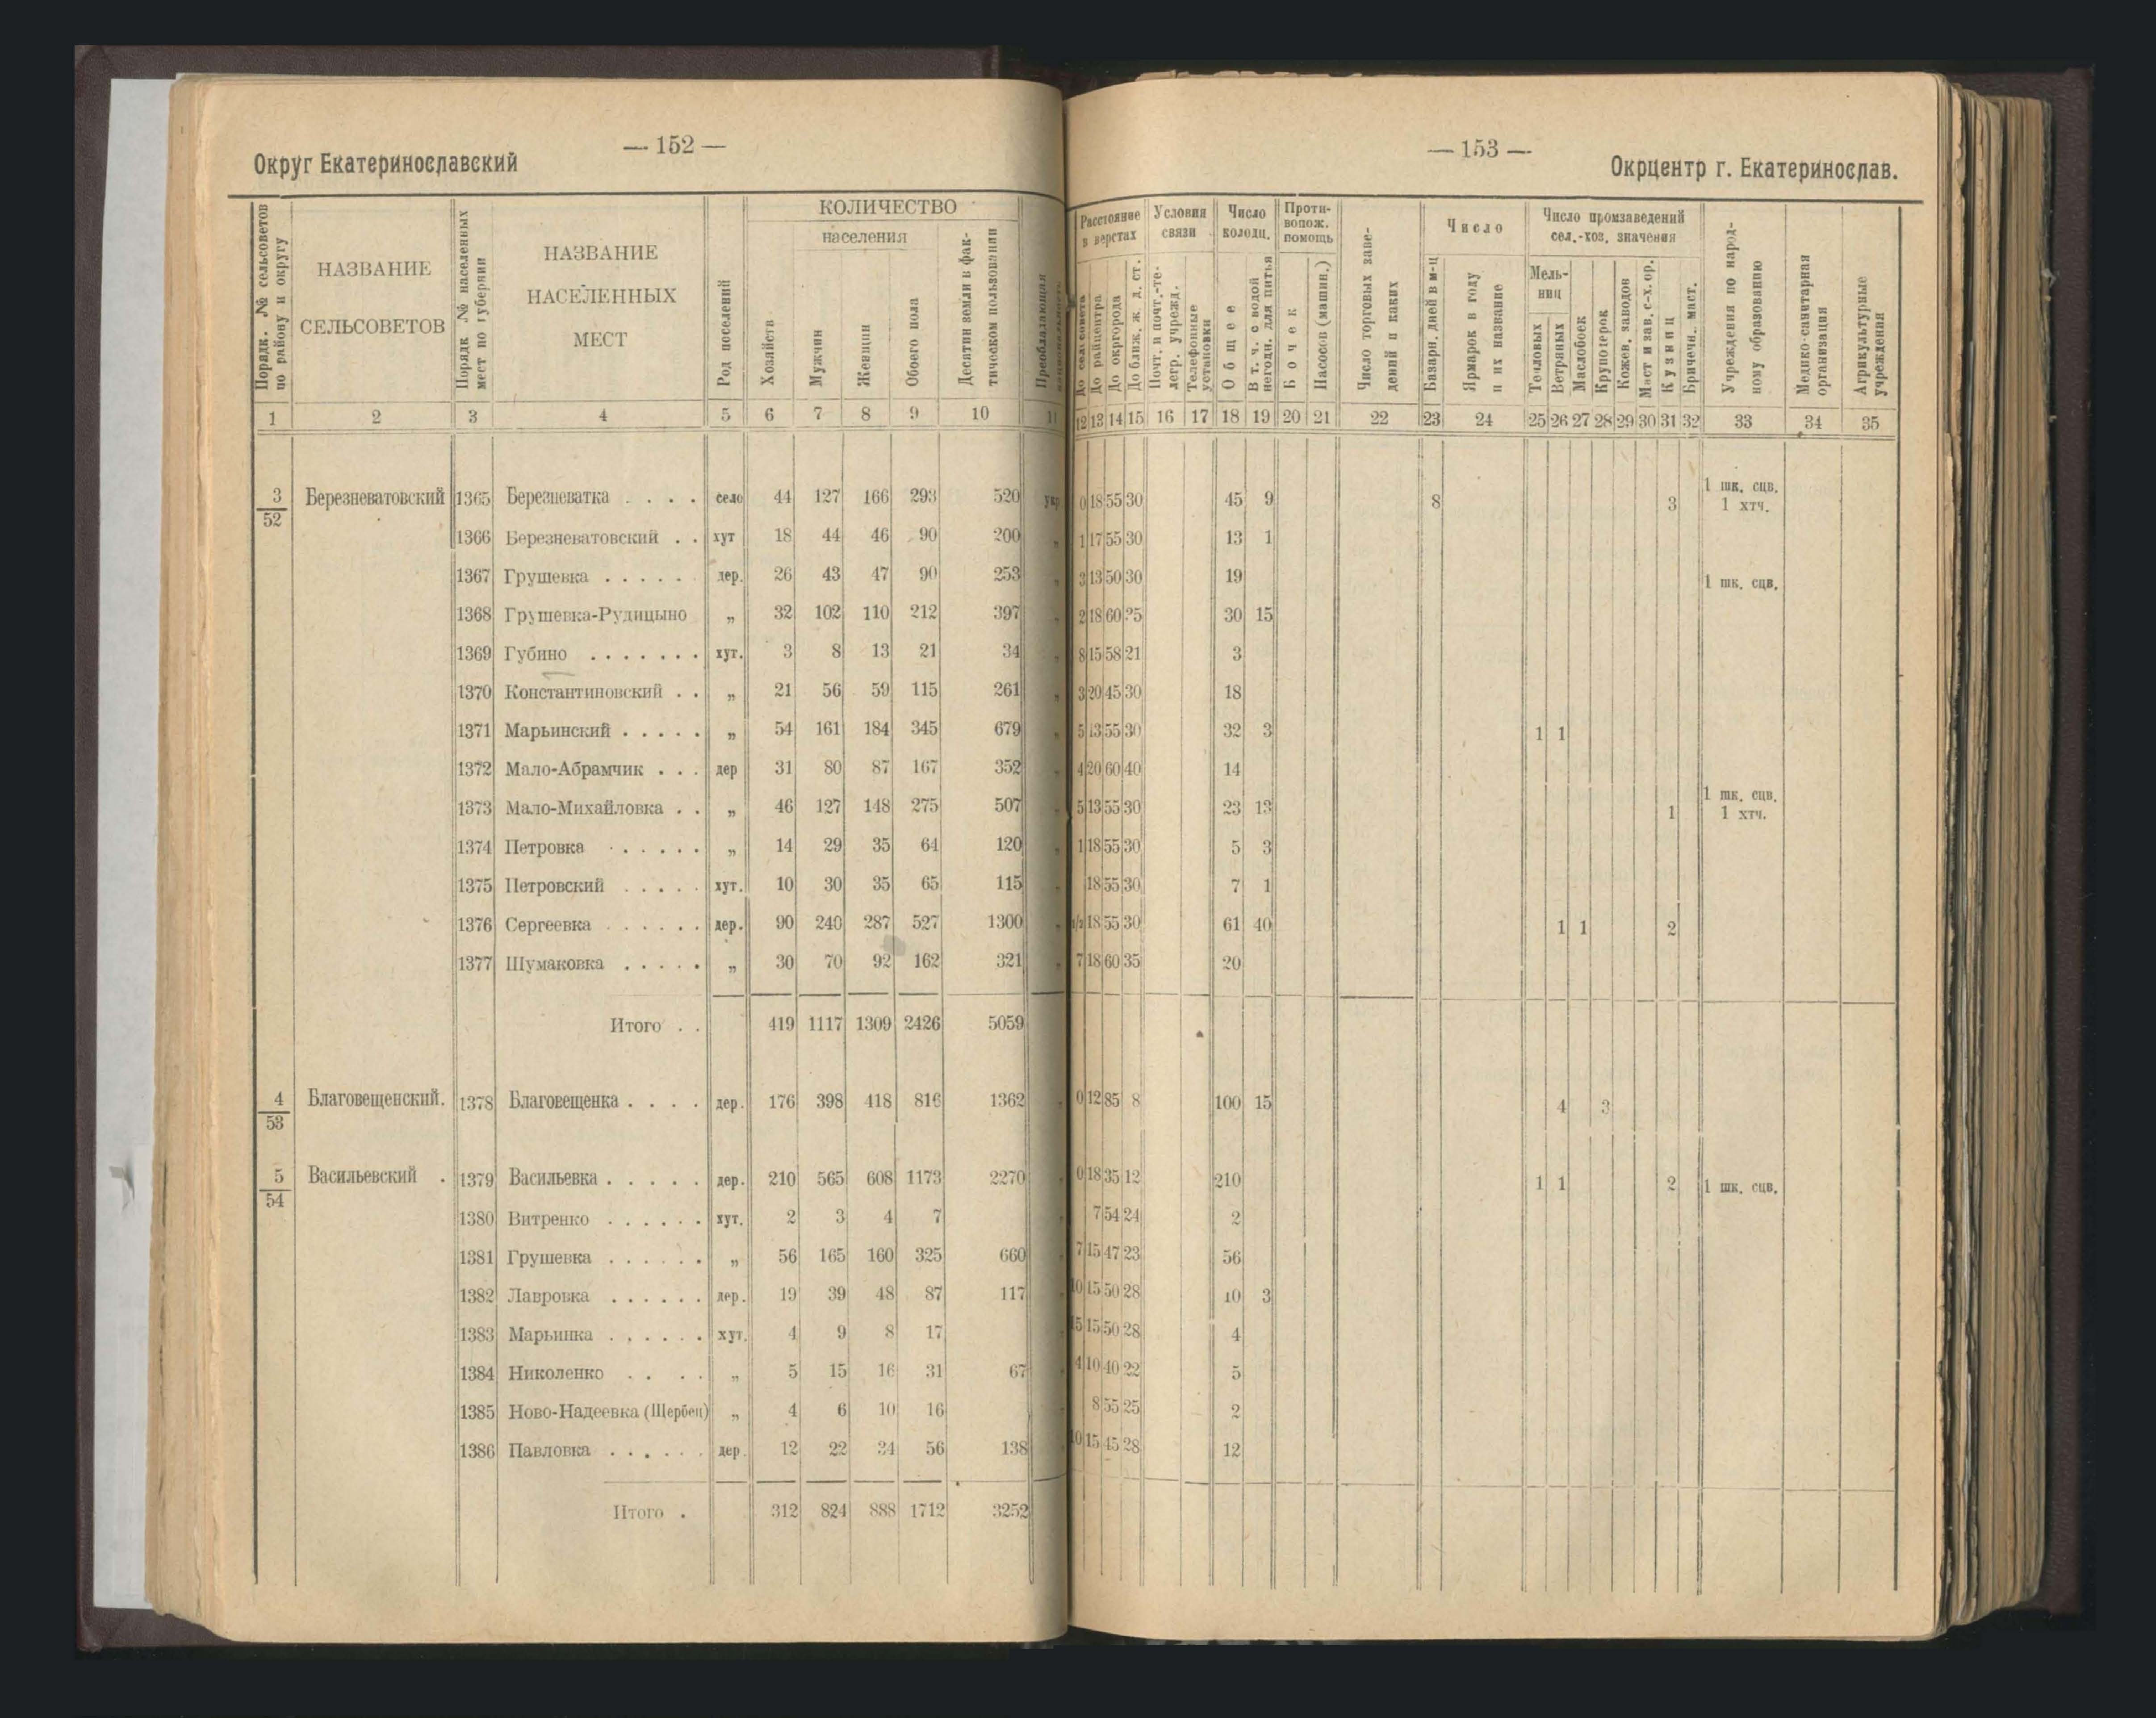 — 152 —
Округ Екатеринославский
Порядк. № сельсоветов по району и округу
НАЗВАНИЕ СЕЛЬСОВЕТОВ
Порядк № населенных мест по губернии
НАЗВАНИЕ НАСЕЛЕННЫХ МЕСТ
Род поселений
КОЛИЧЕСТВО
населения
Хозяйств
Мужчин
Женщин
Обоего пола
Десятин земли в фактическом пользовании
Преобладающая
1 2 3 4 5 6 7 8 9 10 11
3/52 Березневатовский 1365 Березневатка . . . . село 44 127 166 293 520 укр.
1366 Березневатовский . . хут 18 44 46 90 200 „
1367 Грушевка . . . . . дер. 26 43 47 90 253 „
1368 Грушевка-Рудицыно „ 32 102 110 212 397 „
1369 Губино . . . . . . . хут. 3 8 13 21 34 „
1370 Константиновский . . „ 21 56 59 115 261 „
1371 Марьинский . . . . . „ 54 161 184 345 679 „
1372 Мало-Абрамчик . . . дер 31 80 87 167 352 „
1373 Мало-Михайловка . . „ 46 127 148 275 507 „
1374 Петровка . . . . . . „ 14 29 35 64 120 „
1375 Петровский . . . . . хут. 10 30 35 65 115 „
1376 Сергеевка . . . . . . дер. 90 240 287 527 1300 „
1377 Шумаковка . . . . . „ 30 70 92 162 321 „
Итого . . 419 1117 1309 2426 5059
4/53 Благовещенский. 1378 Благовещенка . . . . дер. 176 398 418 816 1362 „
5/54 Васильевский . 1379 Васильевка . . . . . дер. 210 565 608 1173 2270 „
1380 Витренко . . . . . . хут. 2 3 4 7 „
1381 Грушевка . . . . . . „ 56 165 160 325 660 „
1382 Лавровка . . . . . . дер. 19 39 48 87 117 „
1383 Марьинка . . . . . . хут. 4 9 8 17 „
1384 Николенко . . . . „ 5 15 16 31 67 „
1385 Ново-Надеевка (Щербец) „ 4 6 10 16 „
1386 Павловка . . . . . . дер. 12 22 34 56 138 „
Итого . 312 824 888 1712 3252
— 153 —
Окрцентр г. Екатеринослав.
Расстояние в верстах
До сельсовета
До райцентра
До окргорода
До ближ. ж. д. ст.
Условия связи
Почт. и почт.-телегр. учрежд.
Телефонные установки
Число колодц.
Общее
В т. ч. с водой негодн. для питья
Противопож. помощь
Бочек
Насосов (машин.)
Число торговых заведений и каких
Число
Базарн. дней в м-ц
Ярмарок в году и их название
Число промзаведений сел.-хоз. значения
Мельниц
Тепловых
Ветряных
Маслобоек
Крупорок
Кожев. заводов
Маст и зав. с-х. ор.
Кузниц
Бричечн. маст.
Учреждения по народному образованию
Медико-санитарная организация
Агрикультурные учреждения
12 13 14 15 16 17 18 19 20 21 22 23 24 25 26 27 28 29 30 31 32 33 34 35
0 18 55 30 45 9 8 3 1 шк. сцв. 1 хтч.
1 17 55 30 13 1
3 13 50 30 19 1 шк. сцв.
2 18 60 25 30 15
8 15 58 21 3
3 20 45 30 18
5 13 55 30 32 3 1 1
4 20 60 40 14
5 13 55 30 23 13 1 1 шк. сцв. 1 хтч.
1 18 55 30 5 3
18 55 30 7 1
1/2 18 55 30 61 40 1 1 2
7 18 60 35 20
0 12 85 8 100 15 4 3
0 18 35 12 210 1 1 2 1 шк. сцв.
7 54 24 2
7 15 47 23 56
10 15 50 28 10 3
15 15 50 28 4
4 10 40 22 5
8 55 25 2
10 15 45 28 12